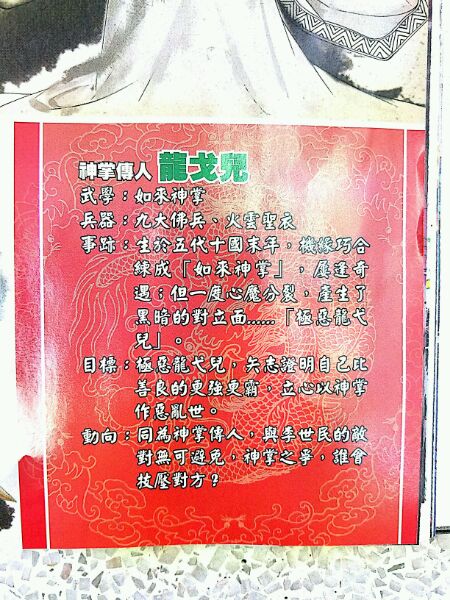 神掌傳人 龍戈兒
武學：如來神掌
兵器：九大佛兵、火雲聖衣
事跡：生於五代十國末年，機緣巧合
練成「如來神掌」，屢逢奇
遇；但一度心魔分裂，產生了
黑暗的對立面……「極惡龍戈
兒」。
目標：極惡龍戈兒，矢志證明自己比
善良的更強更霸，立心以神掌
作惡亂世。
動向：同為神掌傳人，與李世民的敵
對無可避免，神掌之爭，誰會
技壓對方？